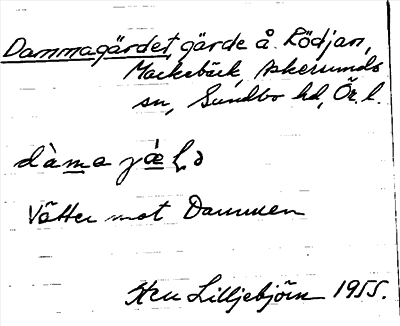 Dammagärdet, gärde å Lödjan,
Markebäck, Askersunds
sn, Sundbo hd, Ör. l.
dàma jæ̀ḷə
Vätter mot Dammen
Sten Lilljebjörn 1955.